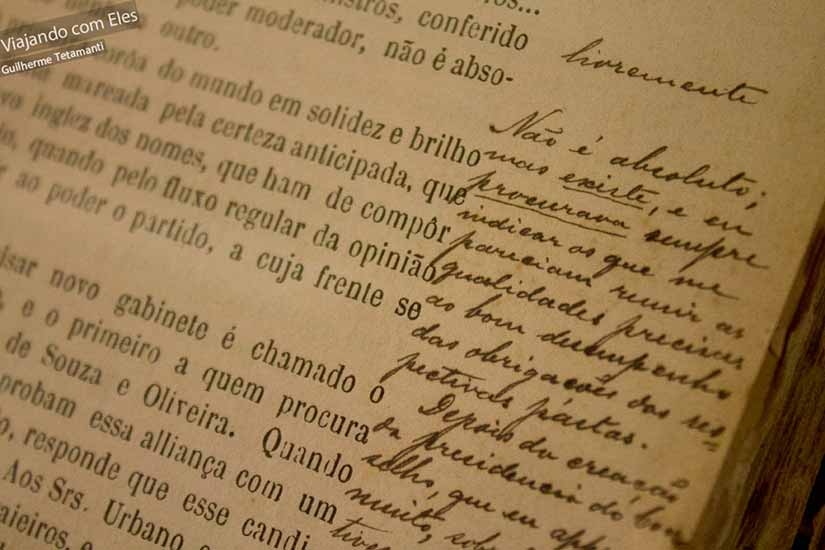 Viajando com Eles
Guilherme Tetamanti
conferido
poder moderador, não é abso-
outro.
do mundo em solidez e brilho
mareada pela certeza anticipada, que
inglez dos nomes, que ham de compôr
quando pelo fluxo regular da opinião
ao poder o partido, a cuja frente se
novo gabinete é chamado o
e o primeiro a quem procura
de Souza e Oliveira. Quando
essa alliança com um
responde que esse candi
Aos Srs. Urbano
livremente
Não é absoluto;
mas existe, e eu
procurava sempre
indicar os que me
pareciam reunir as
qualidades precisas
ao bom desempenho
das obrigações das res-
pectivas pastas.
Depois da creação
da presidencia do Con
selho, que eu
muito,